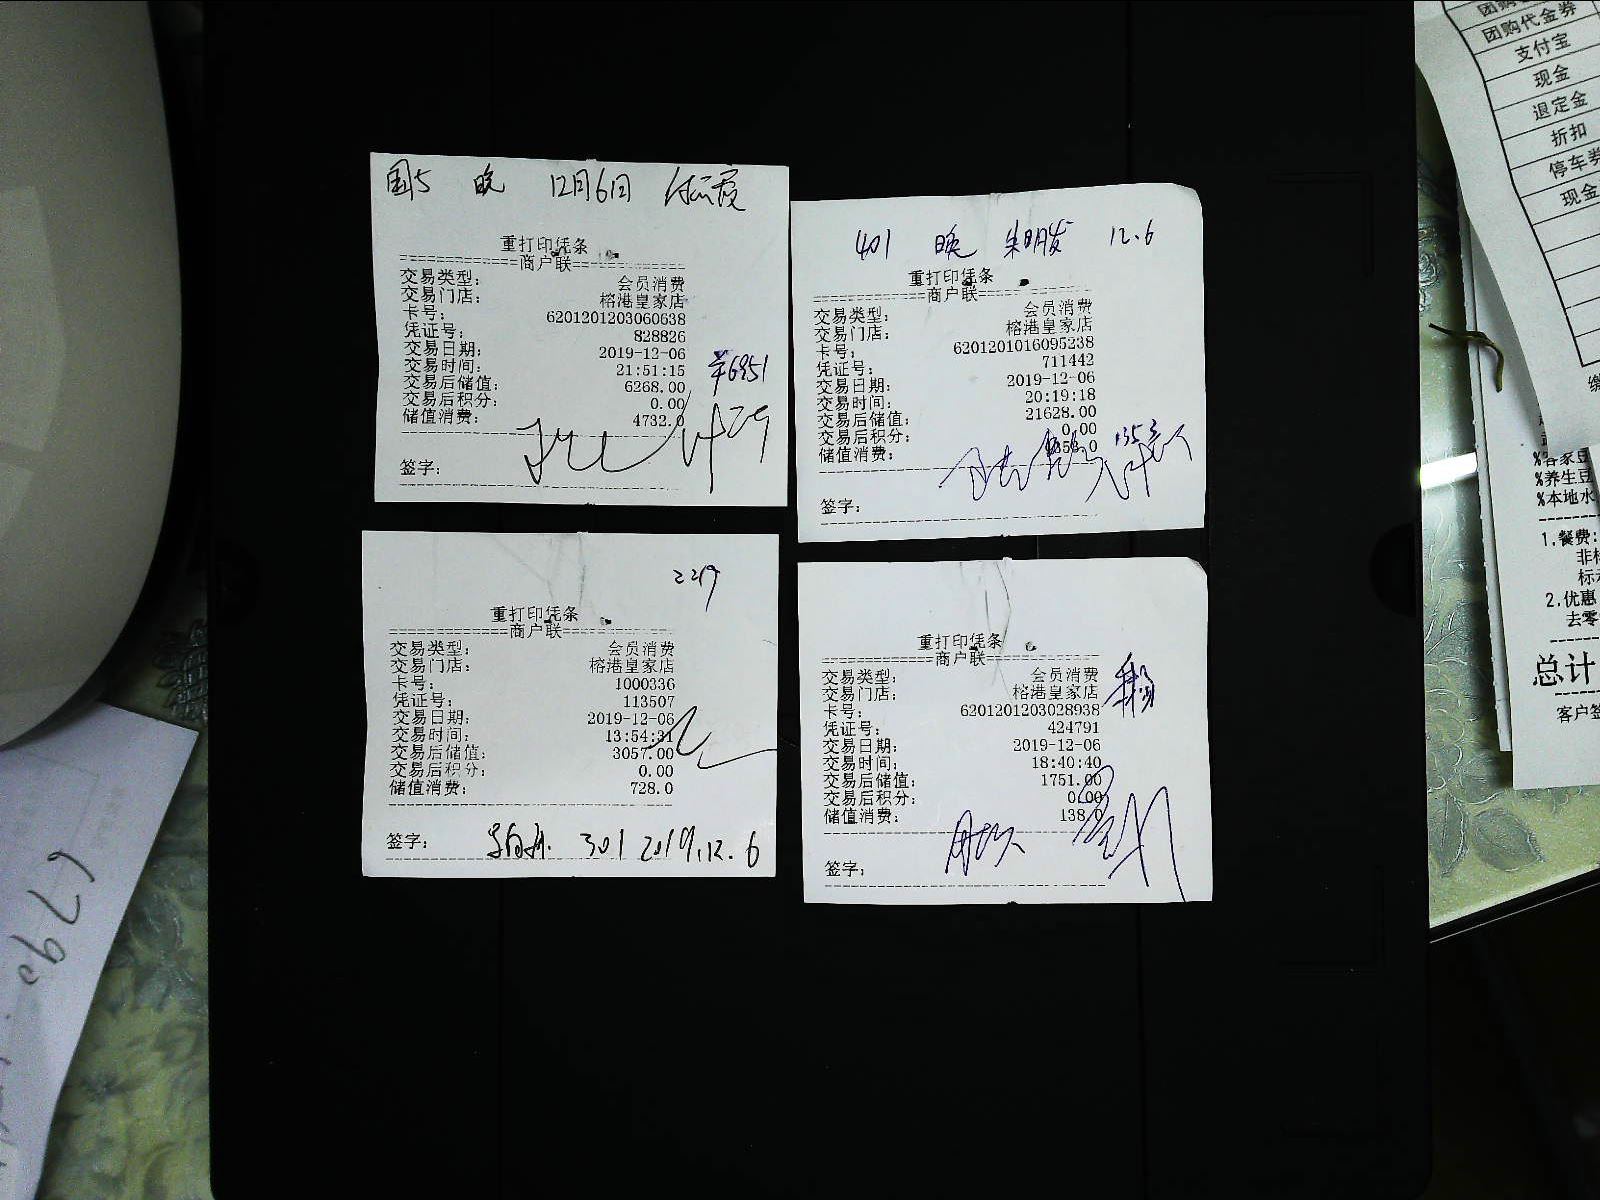 国5 晚 12月6日
重打印凭条
商户联
交易类型： 会员消费
交易门店： 榕港皇家店
卡号： 6201201203060638
凭证号： 828826
交易日期： 2019-12-06
交易时间： 21:51:15
交易后储值： 6268.00
交易后积分： 0.00
储值消费： 4732.0
签字：
401 晚 朱明发 12.6
重打印凭条
商户联
交易类型： 会员消费
交易门店： 榕港皇家店
卡号： 6201201016095238
凭证号： 711442
交易日期： 2019-12-06
交易时间： 20:19:18
交易后储值： 21628.00
交易后积分： 0.00
储值消费：
签字：
重打印凭条
商户联
交易类型： 会员消费
交易门店： 榕港皇家店
卡号： 1000336
凭证号： 113507
交易日期： 2019-12-06
交易时间： 13:54:31
交易后储值： 3057.00
交易后积分： 0.00
储值消费： 728.0
签字： 301 2019.12.6
重打印凭条
商户联
交易类型： 会员消费
交易门店： 榕港皇家店
卡号： 6201201203028938
凭证号： 424791
交易日期： 2019-12-06
交易时间： 18:40:40
交易后储值： 1751.00
交易后积分： 0.00
储值消费： 138.0
签字：
团购代金券
支付宝
现金
退定金
折扣
停车券
现金
%客家豆
%养生豆
%本地水
1.餐费:
2.优惠
去零
总计
客户签
6790